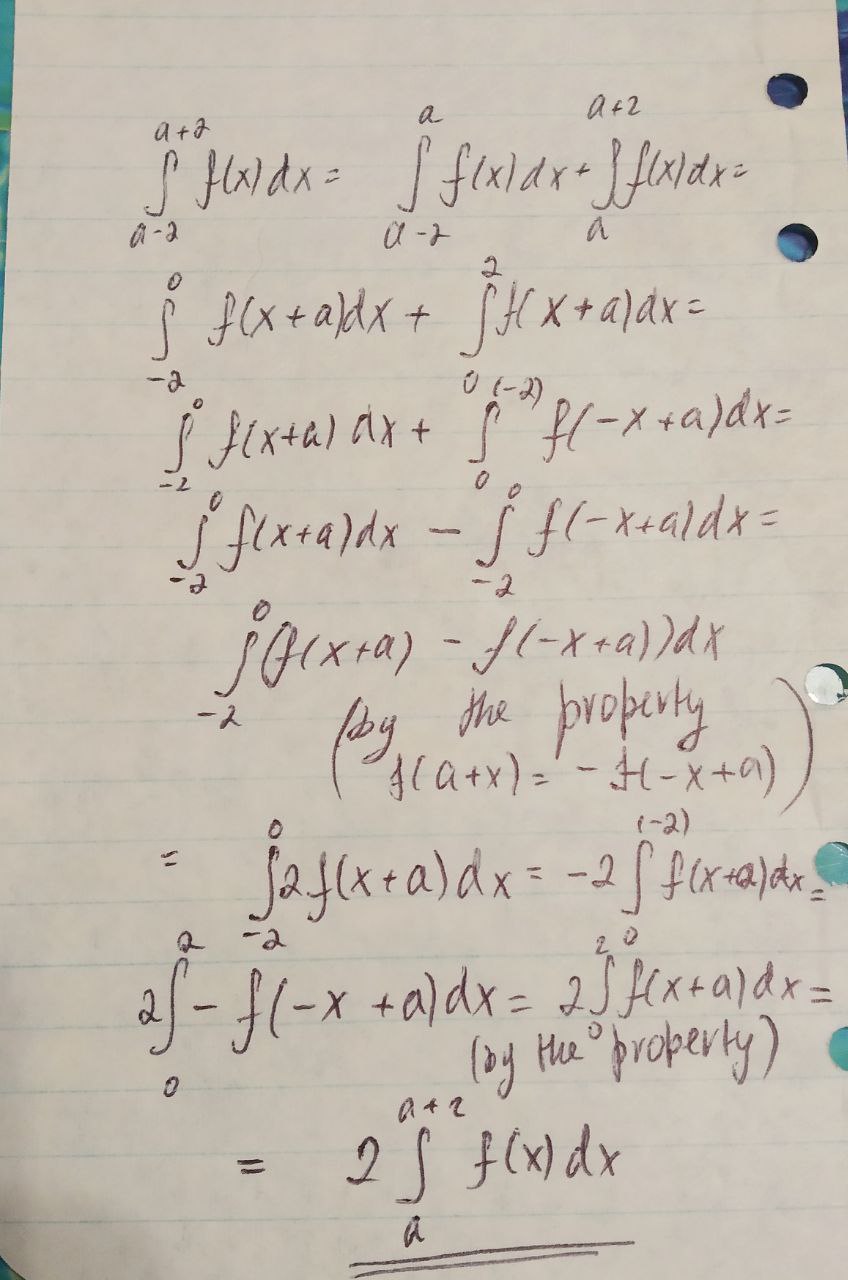 ∫_{a-2}^{a+2} f(x)dx = ∫_{a-2}^{a} f(x)dx + ∫_{a}^{a+2} f(x)dx =
∫_{-2}^{0} f(x+a)dx + ∫_{0}^{2} f(x+a)dx =
∫_{-2}^{0} f(x+a)dx + ∫_{0}^{(-2)} f(-x+a)dx =
∫_{-2}^{0} f(x+a)dx - ∫_{-2}^{0} f(-x+a)dx =
∫_{-2}^{0} (f(x+a) - f(-x+a))dx
(by the property
f(a+x) = -f(-x+a))
= ∫_{-2}^{0} 2f(x+a)dx = -2∫_{0}^{(-2)} f(x+a)dx =
2∫_{0}^{2} - f(-x+a)dx = 2∫_{0}^{2} f(x+a)dx =
(by the property)
= 2∫_{a}^{a+2} f(x)dx